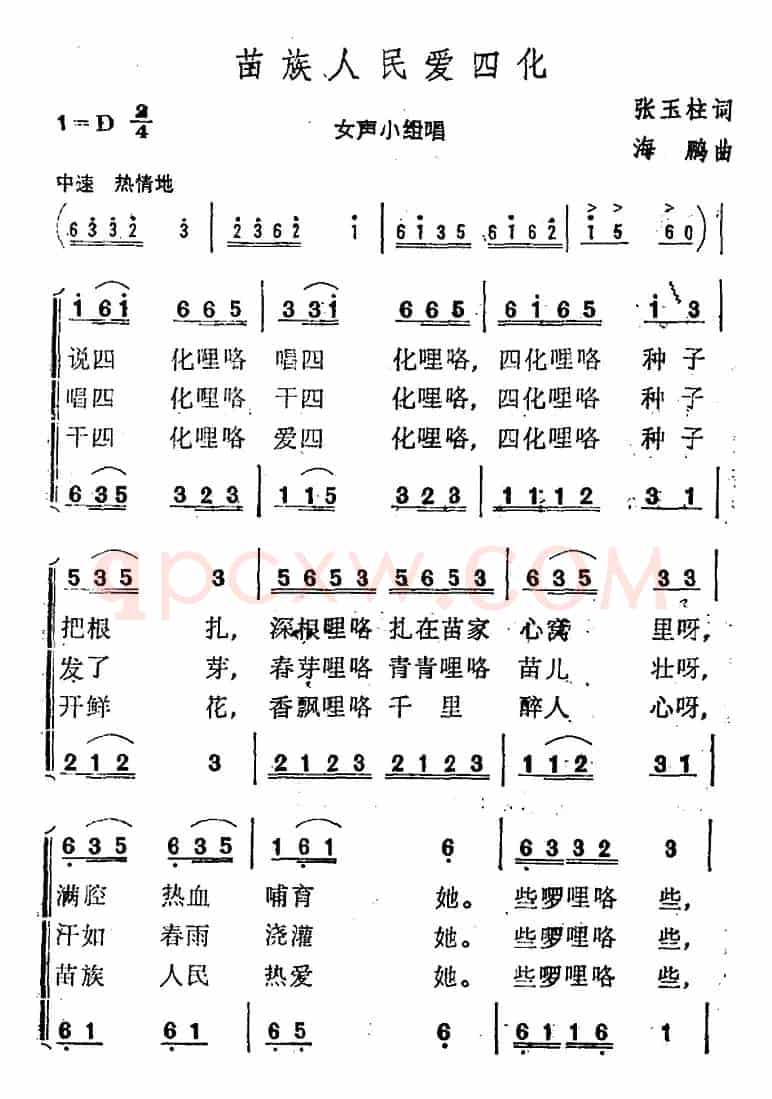 苗族人民爱四化
1=D 2/4
女声小组唱
张玉柱词
海 鹏曲
中速 热情地
(6 3 3 2 3 | 2 3 6 2 1 | 6 1 3 5 6 1 6 2 | 1 5 6 0)
1 6 1 6 6 5 | 3 3 1 6 6 5 | 6 1 6 5 1 3
说四 化哩咯 唱四 化哩咯,四化哩咯 种子
唱四 化哩咯 干四 化哩咯,四化哩咯 种子
干四 化哩咯 爱四 化哩咯,四化哩咯 种子
6 3 5 3 2 3 | 1 1 5 3 2 3 | 1 1 1 2 3 1
5 3 5 3 | 5 6 5 3 5 6 5 3 | 6 3 5 3 3
把根 扎,深根哩咯扎在苗家 心窝 里呀,
发了 芽,春芽哩咯青青哩咯 苗儿 壮呀,
开鲜 花,香飘哩咯千 里 醉人 心呀,
2 1 2 3 | 2 1 2 3 2 1 2 3 | 1 1 2 3 1
6 3 5 6 3 5 | 1 6 1 6 | 6 3 3 2 3
满腔 热血 哺育 她。些啰哩咯 些,
汗如 春雨 浇灌 她。些啰哩咯 些,
苗族 人民 热爱 她。些啰哩咯 些,
6 1 6 1 | 6 5 6 | 6 1 1 6 1
qpcxw.COM